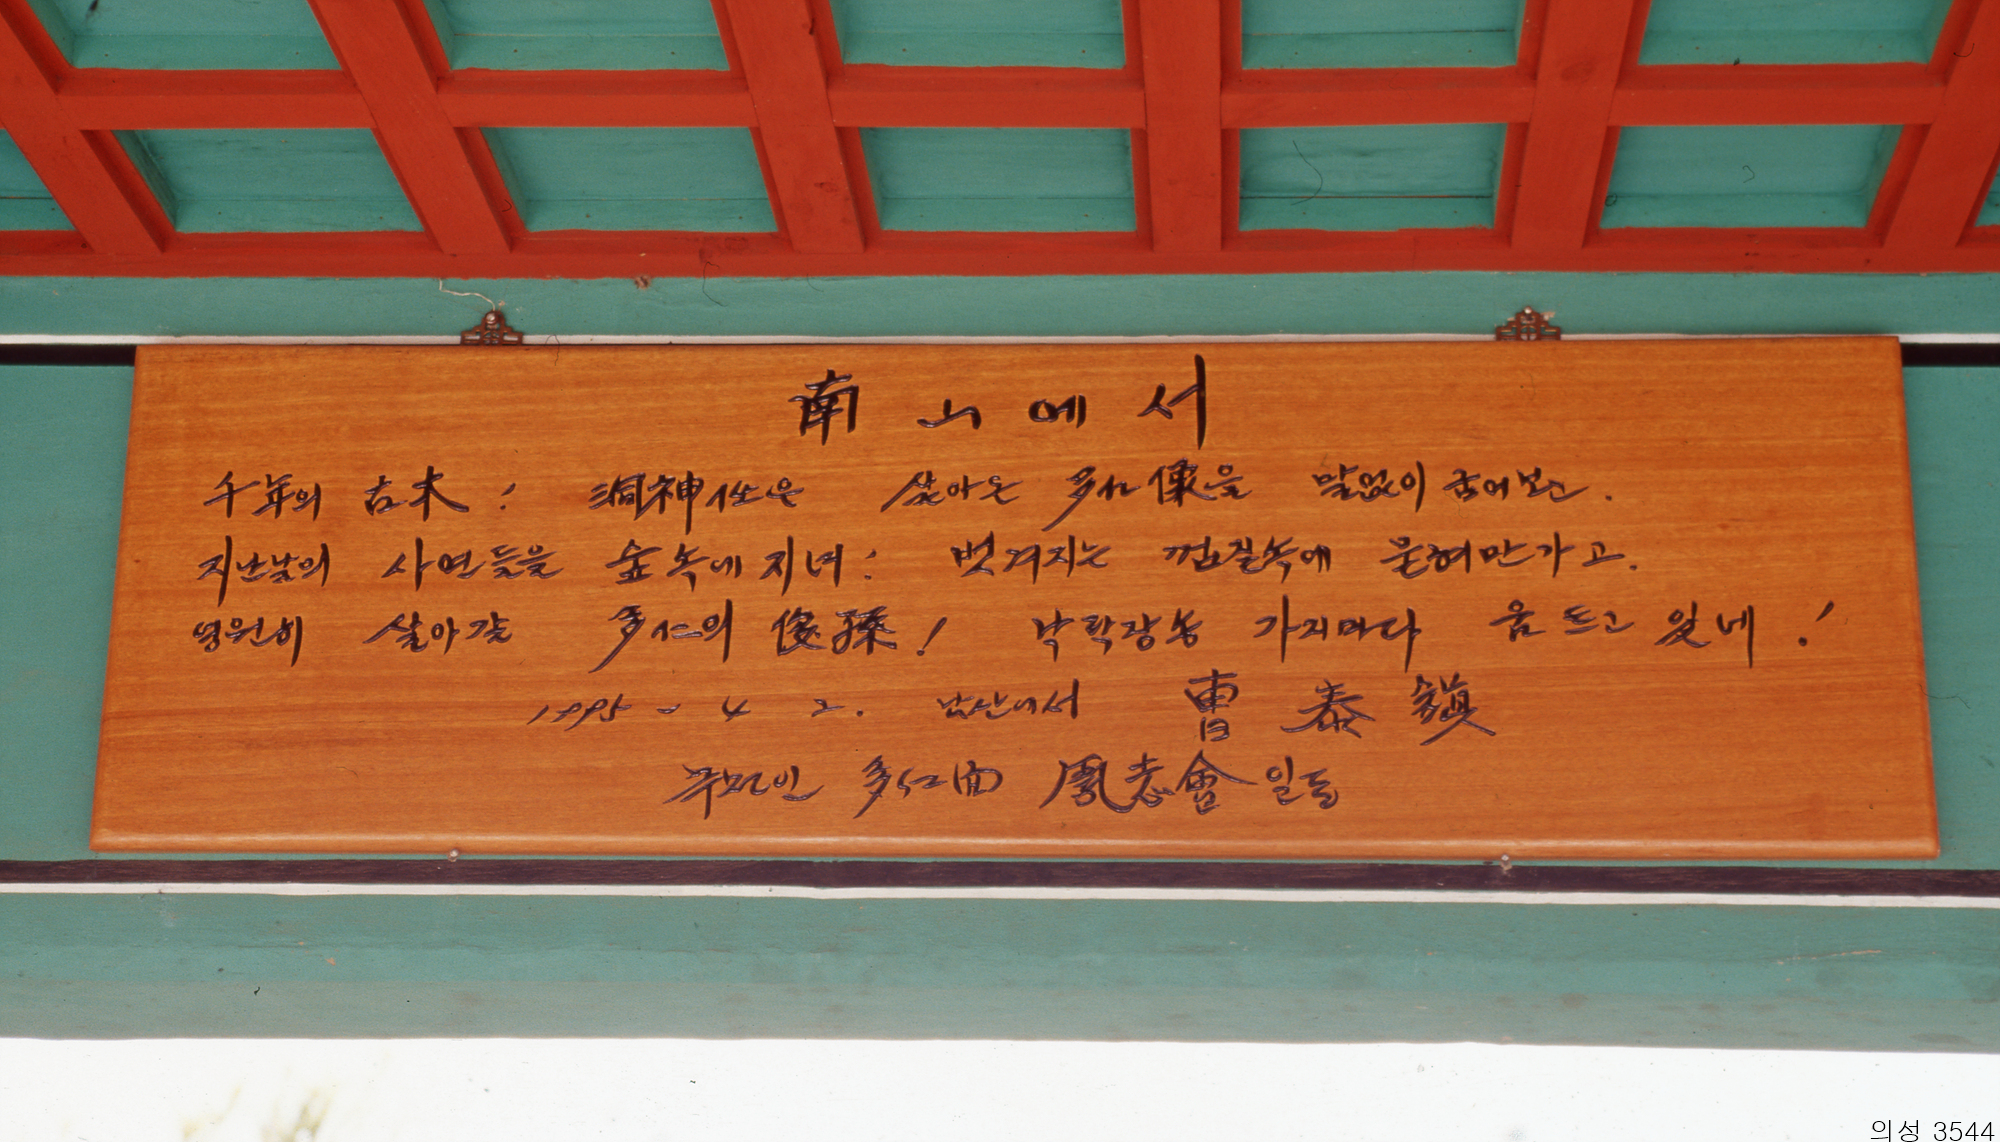 南山에서
千年의 古木! 洞神任은 살아온 多仁像을 말없이 굽어보고.
지난날의 사연들을 숲속에 지녀! 벗겨지는 껍질속에 묻혀만가고.
영원히 살아갈 多仁의 後孫! 낙락장송 가지마다 움트고 있네!
1995 - 4 2. 남산에서 曺泰鎭
多仁面 鳳志會 일동
의성 3544